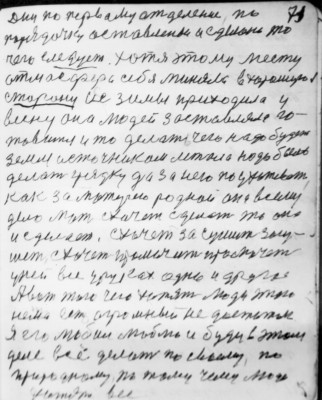 71
Дни по первому отделени, по
порядочку оставлена и сделано то
чего следует. Хотя этому месту
атмасфера себя миняла в хорошую
сторону Из зимы приходила у
весну она людей заставляла го-
товится и то делать чего надо будет
Земля источником стала надо было
делать грядку да за него
как за матирю родной она всему
дело мать схочет сделает то она
и сделает. схочет засушит засу-
шит, схочет промочит промочит
у ней все у руках одно и другое
А вот того чего хотят люди этого
нема ест огромный не достаток
Я его любил люблю и буду в этом
деле всё делать по своему, по
природному, по тому чему люди
все